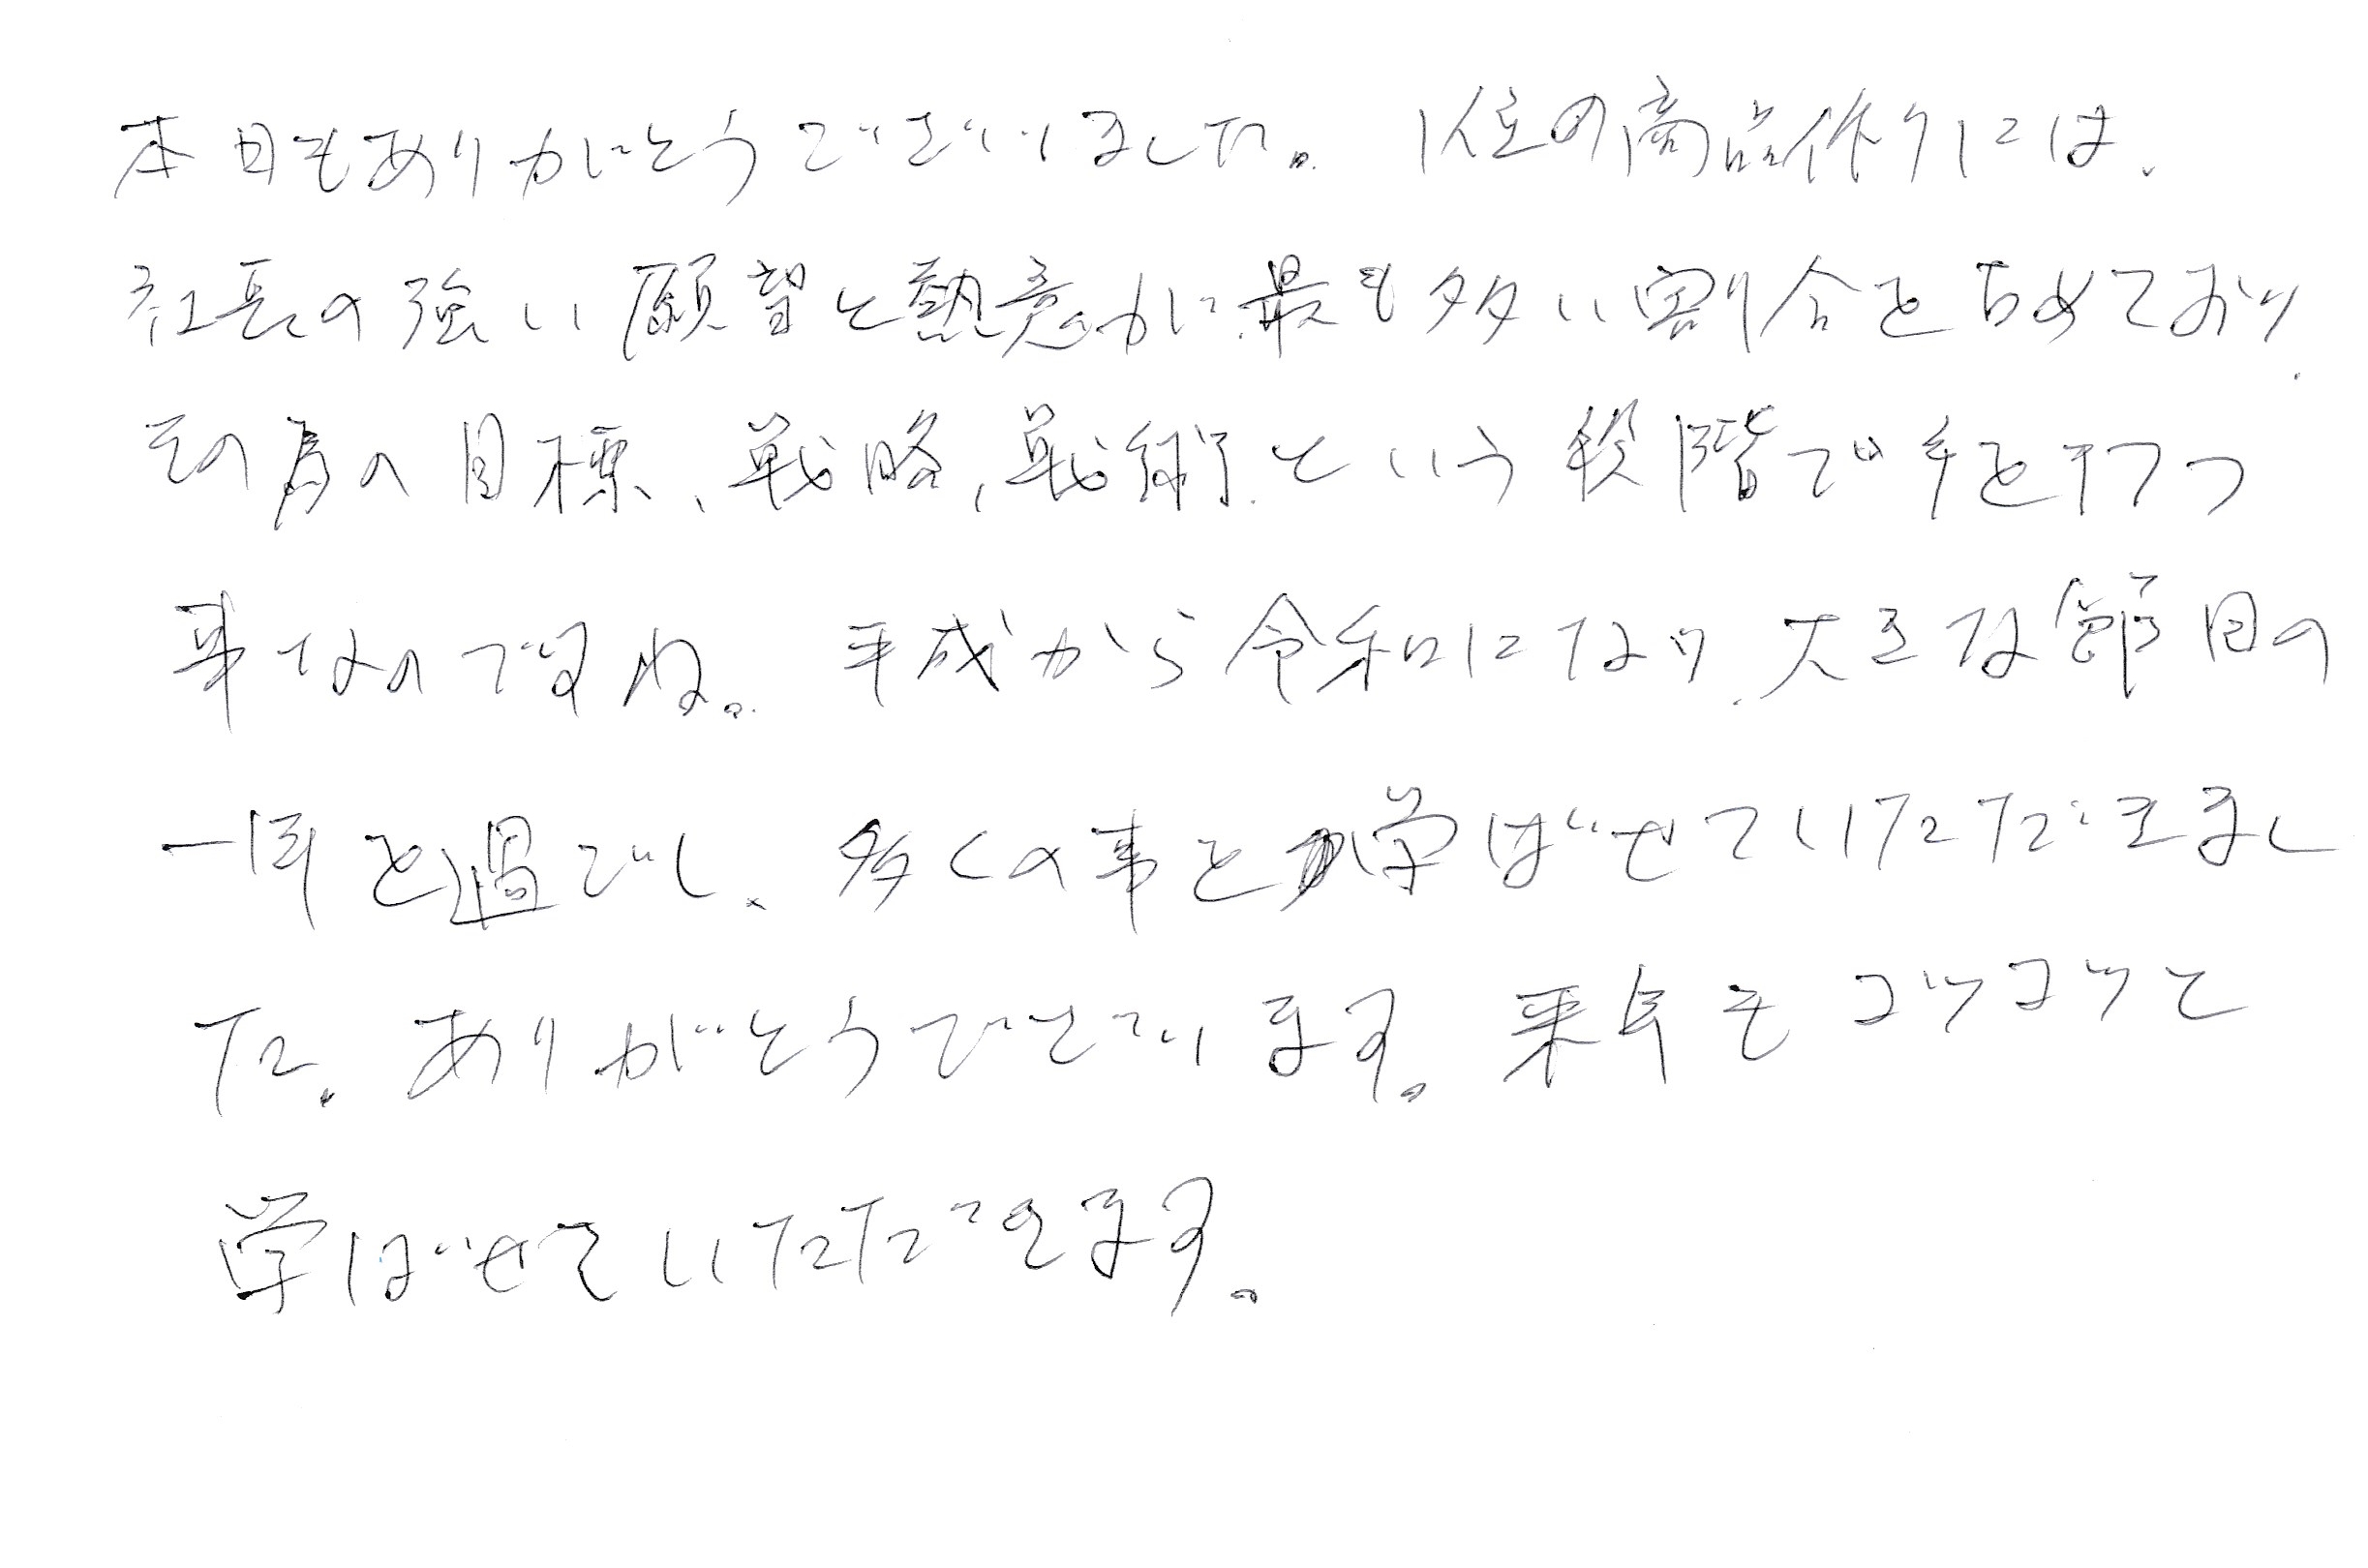 本日もありがとうございました。1位の商品作りには、
社長の強い願望と熱意が最も多い割合を占めており、
その為の目標、戦略、戦術、という段階で手を打つ
事なのですね。平成から令和になり、大きな節目の
一年を過ごし、多くの事を学ばせていただきまし
た。ありがとうございます。来年もコツコツと
学ばせていただきます。